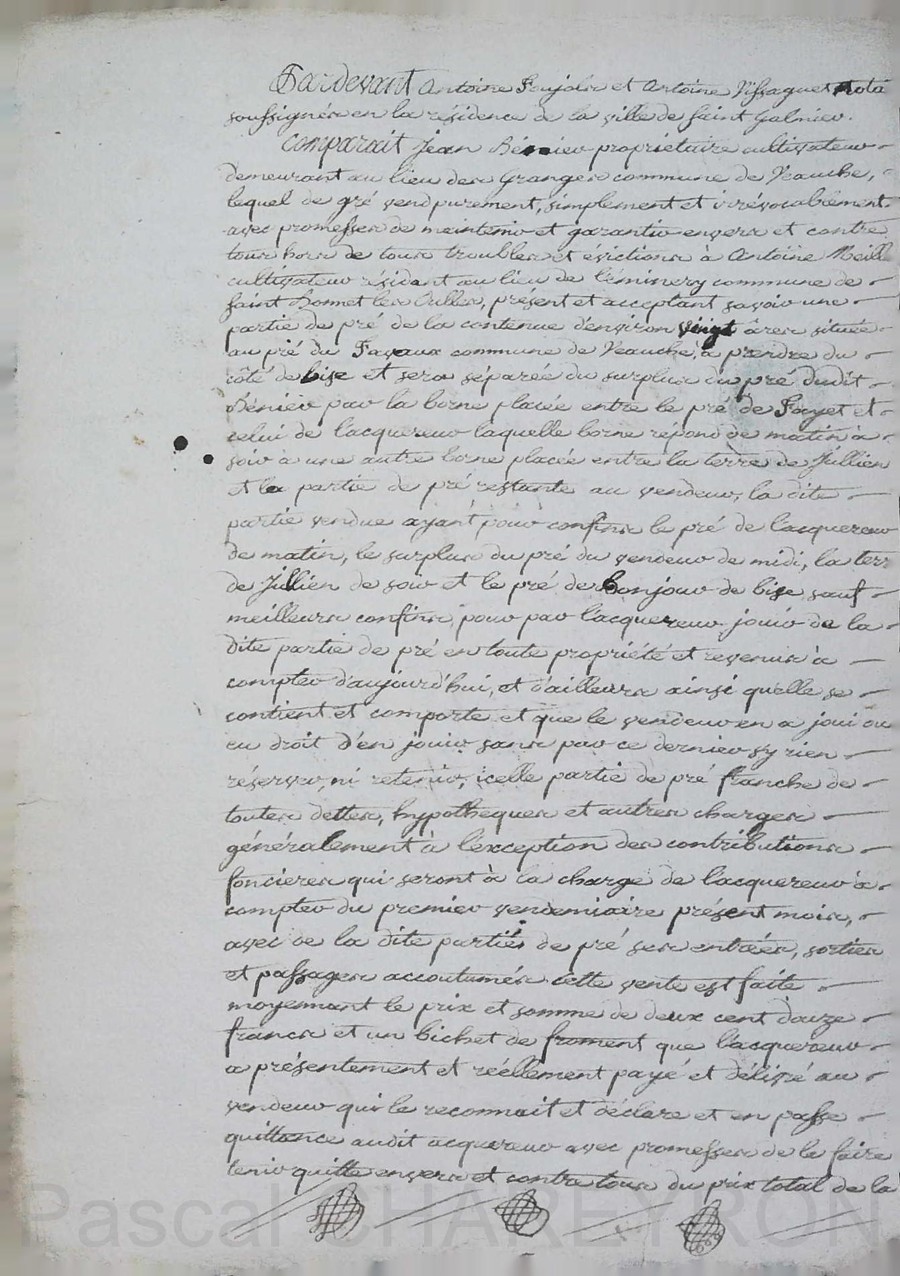 Pardevant Antoine Poujols et Antoine Vissaguet Nota
soussignés en la résidence de la ville de saint Galmier.
Comparait Jean Bénier propriétaire cultivateur
demeurant au lieu des Granges commune de Veauche,
lequel de gré vend purement, simplement et irrévocablement
avec promesses de meintenir et garantir envers et contre
tous hors de tous troubles et évictions à Antoine Meill
cultivateur résidant au lieu de commune de
saint Bonnet les Oulles, présent et acceptant savoir une
partie de pré de la contenue d'environ vingt âres située
au pré du Favaux commune de Veauche, à prendre du
côté de bise et sera séparée du surplus du pré dudit
Bénier par la borne placée entre le pré de Fayet et
celui de lacquereur laquelle borne repond de matin à
soir à une autre borne placée entre la terre de Jullien
et la partie de pré restante au vendeur, la dite
partie vendue ayant pour confins le pré de lacquereur
de matin, le surplus du pré du vendeur de midi, la terr
de Jullien de soir et le pré de Bonjour de bise sauf
meilleurs confins, pour par lacquereur jouir de la
dite partie de pré en toute propriété et revenus à
compter d'aujourd'hui, et d'ailleurs ainsi quelle se
contient et comporte et que le vendeur en a joui ou
eu droit d'en jouir sans par ce dernier s'y rien
réserver, ni retenir, icelle partie de pré franche de
toutes dettes, hypotheques et autres charges
généralement à l'exception des contributions
foncieres qui seront à la charge de lacquereur à
compter du premier vendemiaire présent mois,
avec de la dite partie de pré ses entrées, sorties
et passages accoutumés cette vente est faite
moyennant le prix et somme de deux cent douze
francs et un bichet de froment que l'acquereur
a présentement et réellement payé et délivré au
vendeur qui le reconnait et déclare et en passe
quittance audit acquereur avec promesses de le faire
tenir quitte envers et contre tous du prix total de la
Pascal CHAREYRON